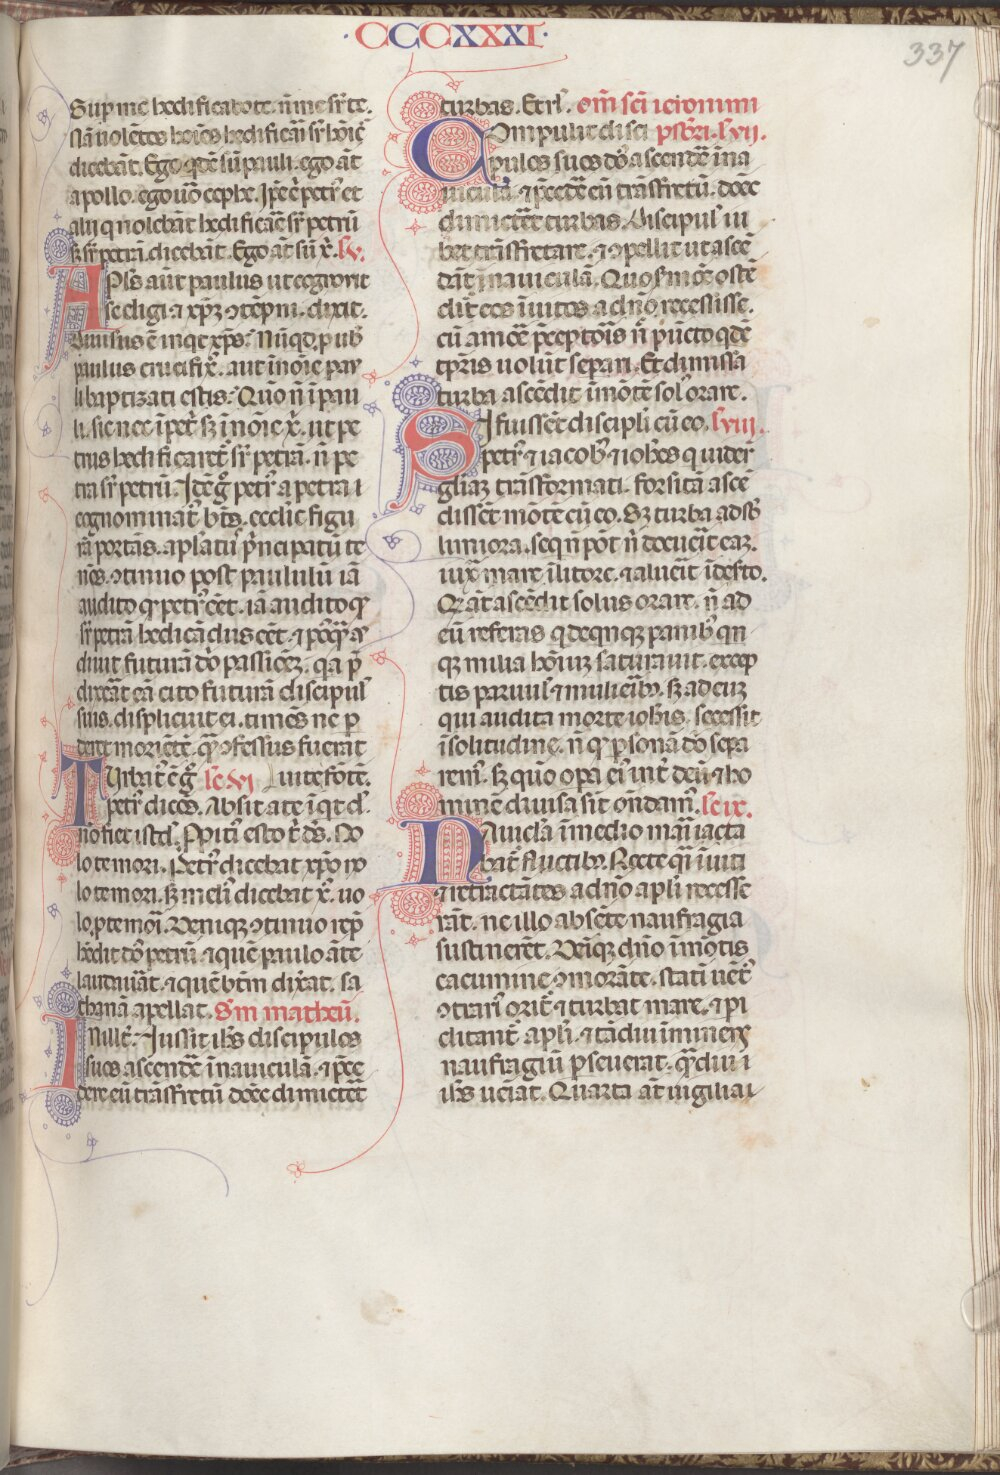 CCCXXXI
337
Sup me hedificabo te. n̄ me sr̄ te.
Nā uolētes hoīes hedificari sr̄ hoīēs
dicebāt. Ego qdē sū pauli. ego aūt
apollo. ego u̅o cephe. Ipē ē petr̄ et
alii q nolebāt hedificari sr̄ petrū
sȝ sr̄ petrā dicebāt. Ego āt sū x̄. lv.
Apl̄s aūt paulus ut cognouit
se eligi ⁊ xp̄ȝ ↄtēpni. dixit.
Diuisus ē inqt xp̄s. Nūqd pub
paulus crucifix̄. aut inoīe pau
li baptizati estis. Quō n̄ ī pau
li. sic nec ī petr̄ sȝ ī noīe x̄. ut pe
trus hedificaret̄ sr̄ petrā. n̄ pe
tra sr̄ petrū. Idē g̅ petr̄ a petra
cognominat̄ bt̄s. ecclīe figu
rā portās. apl̄atꝰ p̄ncipatū te
nēs. ↄtinuo post paululū iā
audito q petr̄ cēt. iā audito q
sr̄ petrā hedicādus cēt.
dixit futurā dō passionē. qa p̄
dixāt eā cito futurā discipul̄
suis. displicuit ei. timēs ne p
deret moriēte. quē ↄfessus fuerat
Turbat̄ ē g̅ lvi uite fōtē.
petr̄ dicēs. Absit a te īqt dn̄e.
nō fiet istud. Ppiti' esto t̄ ds. No
lo te mori. Petr̄ dicebat xp̄o no
lo te mori. sȝ meli' dicebat x̄. uo
lo p te mori. Deniqȝ ↄtinuo rep̄
hēdit dō petrū. ⁊ quē paulo āte
laudauāt. ⁊ quē btm̄ dixāt. sa
thanā apellat. Sm̄ matheū.
Inillt̄. Iussit ih̄s discipulos
suos ascendē̄ ī nauiculā. ⁊ p̄ce
dere eū trāsfretū. donec dimictēt
turbas. Et rl'. om̄l sc̄i ieronimi
Compulit disci psbr̄i. lvii.
pulos suos dō ascendē̄ īna
uiculā. ⁊ p̄cedē̄ eū trāsfretū. donēc
dimictēt turbas. Discipul' iu
bet trāsfretare. ⁊ ↄpellit ut ascē
dāt ī nauiculā. Quo smōe ostē
dit̄ eos īuitos a dn̄o recessisse.
cū amoē p̄ceptoris n̄ pūcto qdē
tp̄ris uolūt separi. Et dimissa
turba ascēdit īmōtē sol' orare.
Si fuissēt discipli cū eo. lviii.
petr̄ ⁊ iacob' ⁊ iohēs q uider̄
gl̄iaȝ trāsformati. forsitā ascē
dissēt mōtē cū eo. Sȝ turba ad sb̄
limiora. seq n̄ pōt n̄ docueīt eaȝ.
iux̄ mare ī litore. ⁊ alueīt ī dest̄o.
Qr̄ āt ascēdit solus orare. n̄ ad
eū referas q de qnqȝ panibꝰ qn
qȝ milia hoīuȝ saturauit. excep
tis paruul' ⁊ mulieribꝰ. sȝ ad euȝ
qui audita morte ioh̄is. secessit
ī solitudine. n̄ q psonā dō sepa
rem'. sȝ quō opa ei' int̄ deū ⁊ ho
minē diuisa sīt ōndam'. lix.
Nauicla īmedio mari iacta
bat̄ fluctibꝰ. Recte qa īuiti
⁊ retractātes a dn̄o apl̄i recesse
rāt. ne illo absēte naufragia
sustinerēt. Deīqȝ dn̄o īmōtis
cacumine ↄmorāte. stati uēt̄
ↄtrari' orit̄ ⁊ turbat mare. ⁊ pi
clitant̄ apl̄i. ⁊ tādiu īminēs
naufragiū pseuerat. quādiu i
ih̄s ueīat. Quarta āt uigilia